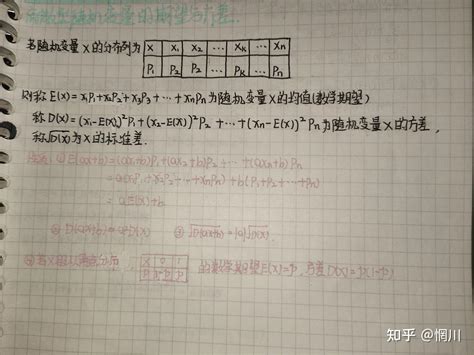 离散型随机变量的期望与方差.
若随机变量X的分布列为 X x₁ x₂ … xₖ … xₙ
P₁ P₂ … Pₖ … Pₙ
则称E(X)=x₁P₁+x₂P₂+x₃P₃+…+xₙPₙ为随机变量X的均值(数学期望)
称D(X)=(x₁-E(X))²P₁+(x₂-E(X))²P₂+…+(xₙ-E(X))²Pₙ为随机变量X的方差,
称√D(X)为X的标准差.
①E(aX+b)=(ax₁+b)P₁+(ax₂+b)P₂+…+(axₙ+b)Pₙ
=a(x₁P₁+x₂P₂+…+xₙPₙ)+b(P₁+P₂+…+Pₙ)
=aE(X)+b
②D(aX+b)=a²D(X) ③√D(aX+b)=|a|√D(X)
④若X服从两点分布 X 0 1 的数学期望E(X)=P,方差D(X)=P(1-P)
P 1-P P
知乎 @惘川